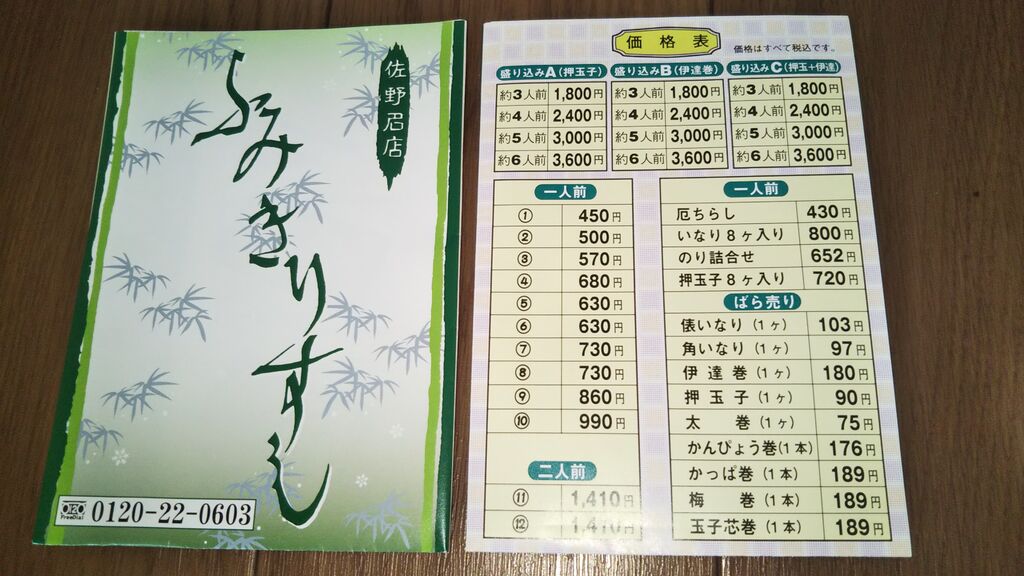 ふみきりすし
佐野召店
0120
FreeDial
0120-22-0603
価格表
価格はすべて税込です。
盛り込みA(押玉子)
約3人前 1,800円
約4人前 2,400円
約5人前 3,000円
約6人前 3,600円
盛り込みB(伊達巻)
約3人前 1,800円
約4人前 2,400円
約5人前 3,000円
約6人前 3,600円
盛り込みC(押玉+伊達)
約3人前 1,800円
約4人前 2,400円
約5人前 3,000円
約6人前 3,600円
一人前
① 450円
② 500円
③ 570円
④ 680円
⑤ 630円
⑥ 630円
⑦ 730円
⑧ 730円
⑨ 860円
⑩ 990円
二人前
⑪ 1,410円
⑫ 1,410円
一人前
厄ちらし 430円
いなり8ヶ入り 800円
のり詰合せ 652円
押玉子8ヶ入り 720円
ばら売り
俵いなり(1ヶ) 103円
角いなり(1ヶ) 97円
伊達巻(1ヶ) 180円
押玉子(1ヶ) 90円
太巻(1ヶ) 75円
かんぴょう巻(1本) 176円
かっぱ巻(1本) 189円
梅巻(1本) 189円
玉子芯巻(1本) 189円